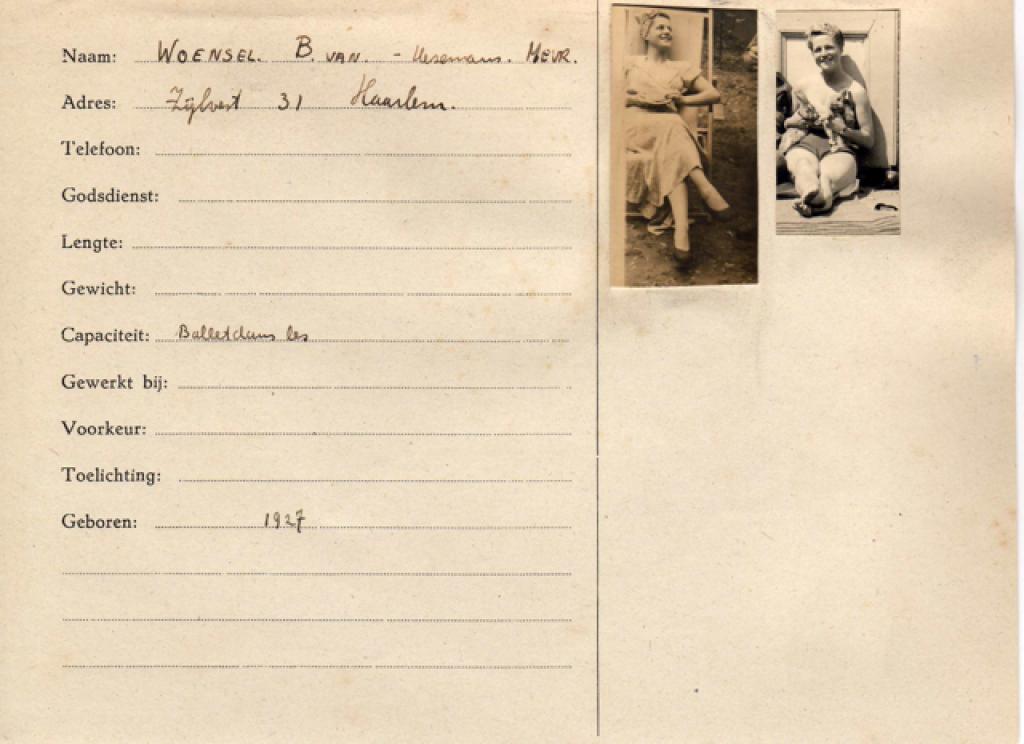 Naam: WOENSEL. B. VAN. - Uesemans. MEVR.
Adres: Zijlvest 31 Haarlem.
Telefoon:
Godsdienst:
Lengte:
Gewicht:
Capaciteit: Balletdans les
Gewerkt bij:
Voorkeur:
Toelichting:
Geboren: 1927